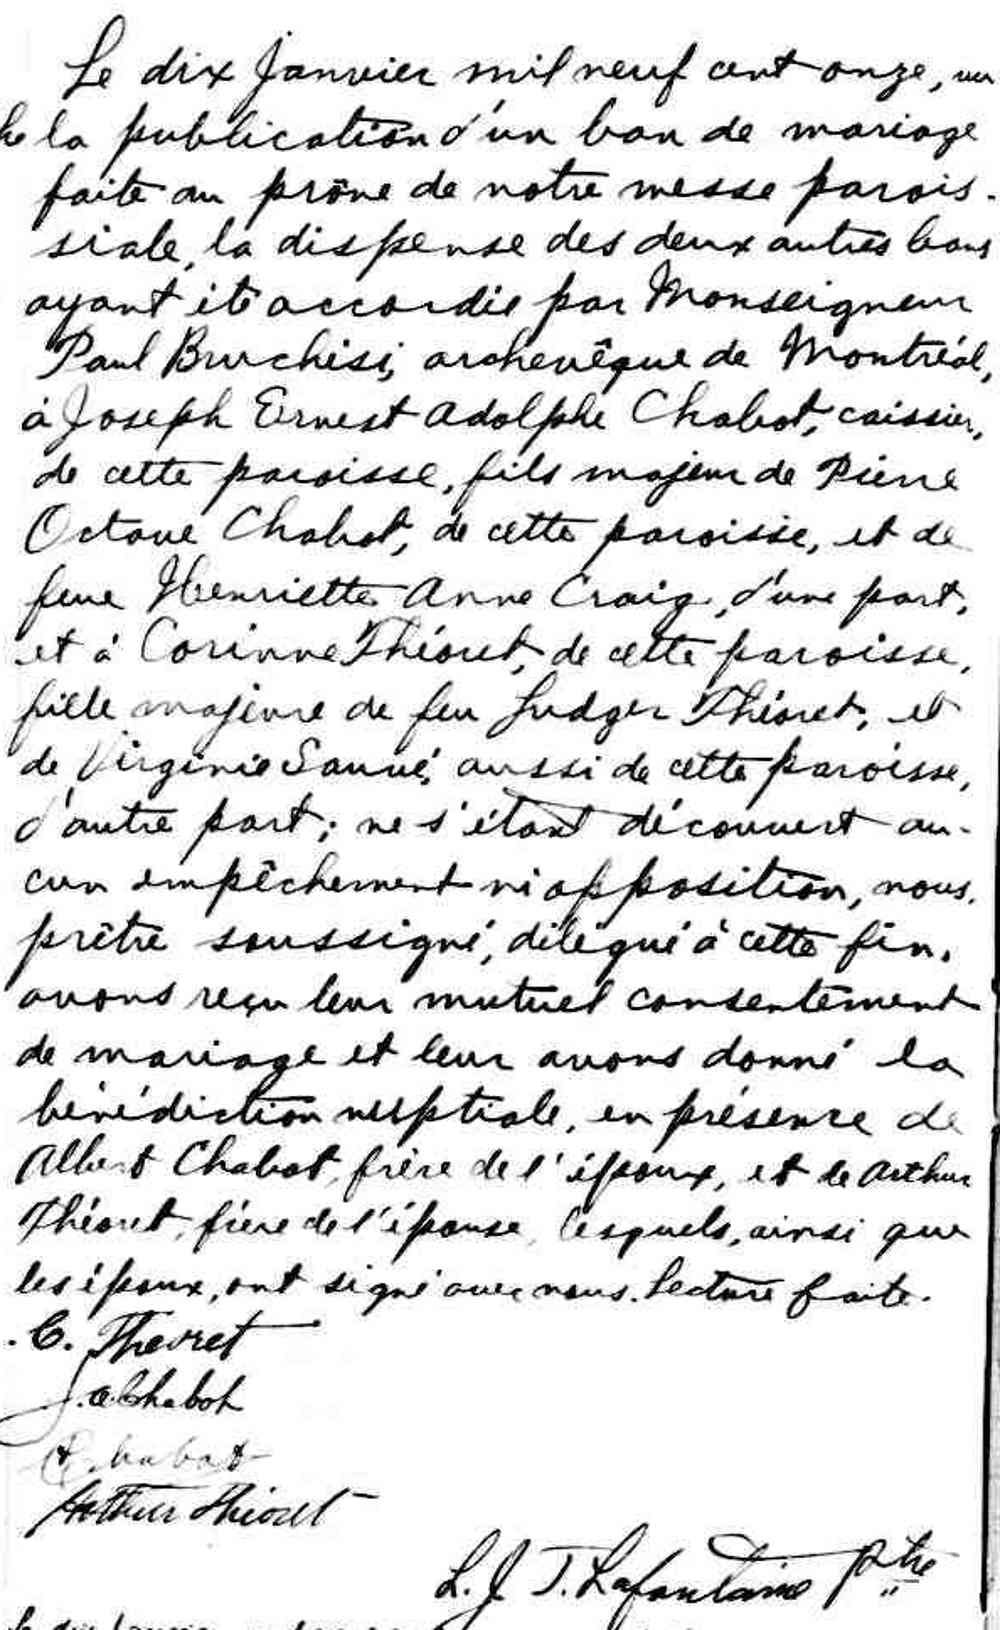 Le dix Janvier mil neuf cent onze, vu
la publication d'un ban de mariage
faite au prône de notre messe parois-
siale, la dispense des deux autres bans
ayant été accordée par Monseigneur
Paul Bruchési, archevêque de Montréal,
à Joseph Ernest Adolphe Chabot, caissier,
de cette paroisse, fils majeur de Pierre
Octave Chabot, de cette paroisse, et de
feue Henriette Anne Craig, d'une part,
et à Corinne Théoret, de cette paroisse,
fille majeure de feu Ludger Théoret, et
de Virginie Sauvé, aussi de cette paroisse,
d'autre part; ne s'étant découvert au-
cun empêchement ni opposition, nous,
prêtre soussigné, délégué à cette fin,
avons reçu leur mutuel consentement
de mariage et leur avons donné la
bénédiction nuptiale, en présence de
Albert Chabot, frère de l'époux, et de Arthur
Théoret, frère de l'épouse, lesquels, ainsi que
les époux, ont signé avec nous. Lecture faite.
C. Theoret
J. A. Chabot
Chabot
Arthur Théoret
L. J. T. Lafontaine ptre